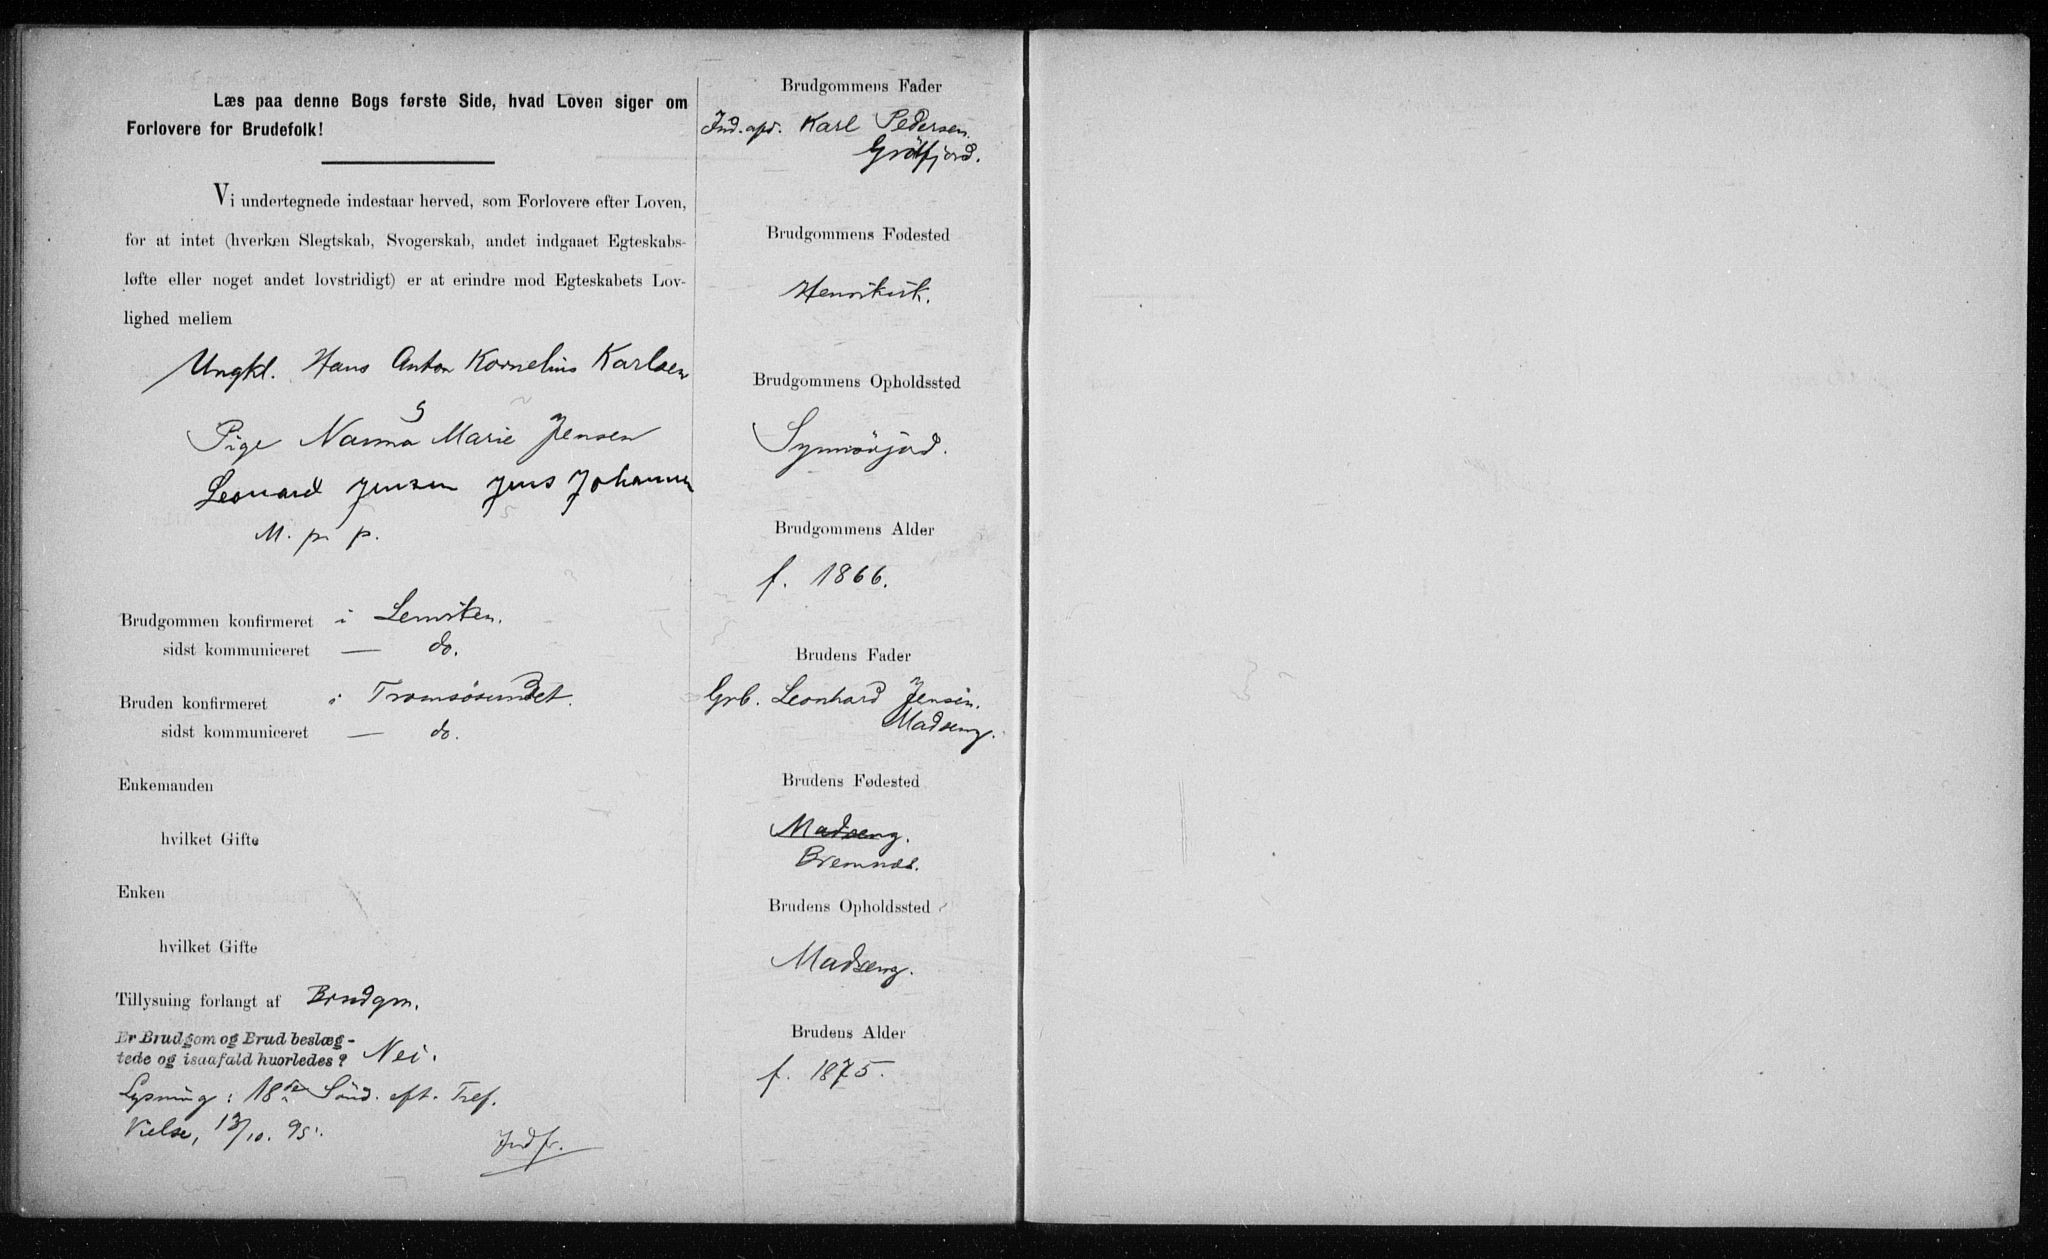 Læs paa denne Bogs første Side, hvad Loven siger om
Forlovere for Brudefolk!
Vi undertegnede indestaar herved, som Forlovere efter Loven,
for at intet (hverken Slegtskab, Svogerskab, andet indgaaet Egteskabs-
løfte eller noget andet lovstridigt) er at erindre mod Egteskabets Lov-
lighed mellem
Ungkl. Hans Anton Kornelius Karlsen
Pige Nanna Marie Jensen
Leonard Jensen Jens Johannes
M. p. p.
Brudgommen konfirmeret i Lenviken.
sidst kommuniceret — do.
Bruden konfirmeret i Tromsøsundet.
sidst kommuniceret — do.
Enkemanden
hvilket Gifte
Enken
hvilket Gifte
Tillysning forlangt af Brudgm.
Er Brudgom og Brud beslæg-
tede og isaafald hvorledes? Nei.
Lysning: 18de Sönd. eft. Tref.
Vielse, 13/10. 95.
Indfr.
Brudgommens Fader
Ind. Karl Pedersen.
Grötfjord.
Brudgommens Fødested
Brudgommens Opholdssted
Brudgommens Alder
f. 1866.
Brudens Fader
Grb. Leonhard Jensen.
Madseng.
Brudens Fødested
Madseng.
Bremnes.
Brudens Opholdssted
Madseng.
Brudens Alder
f. 1875.